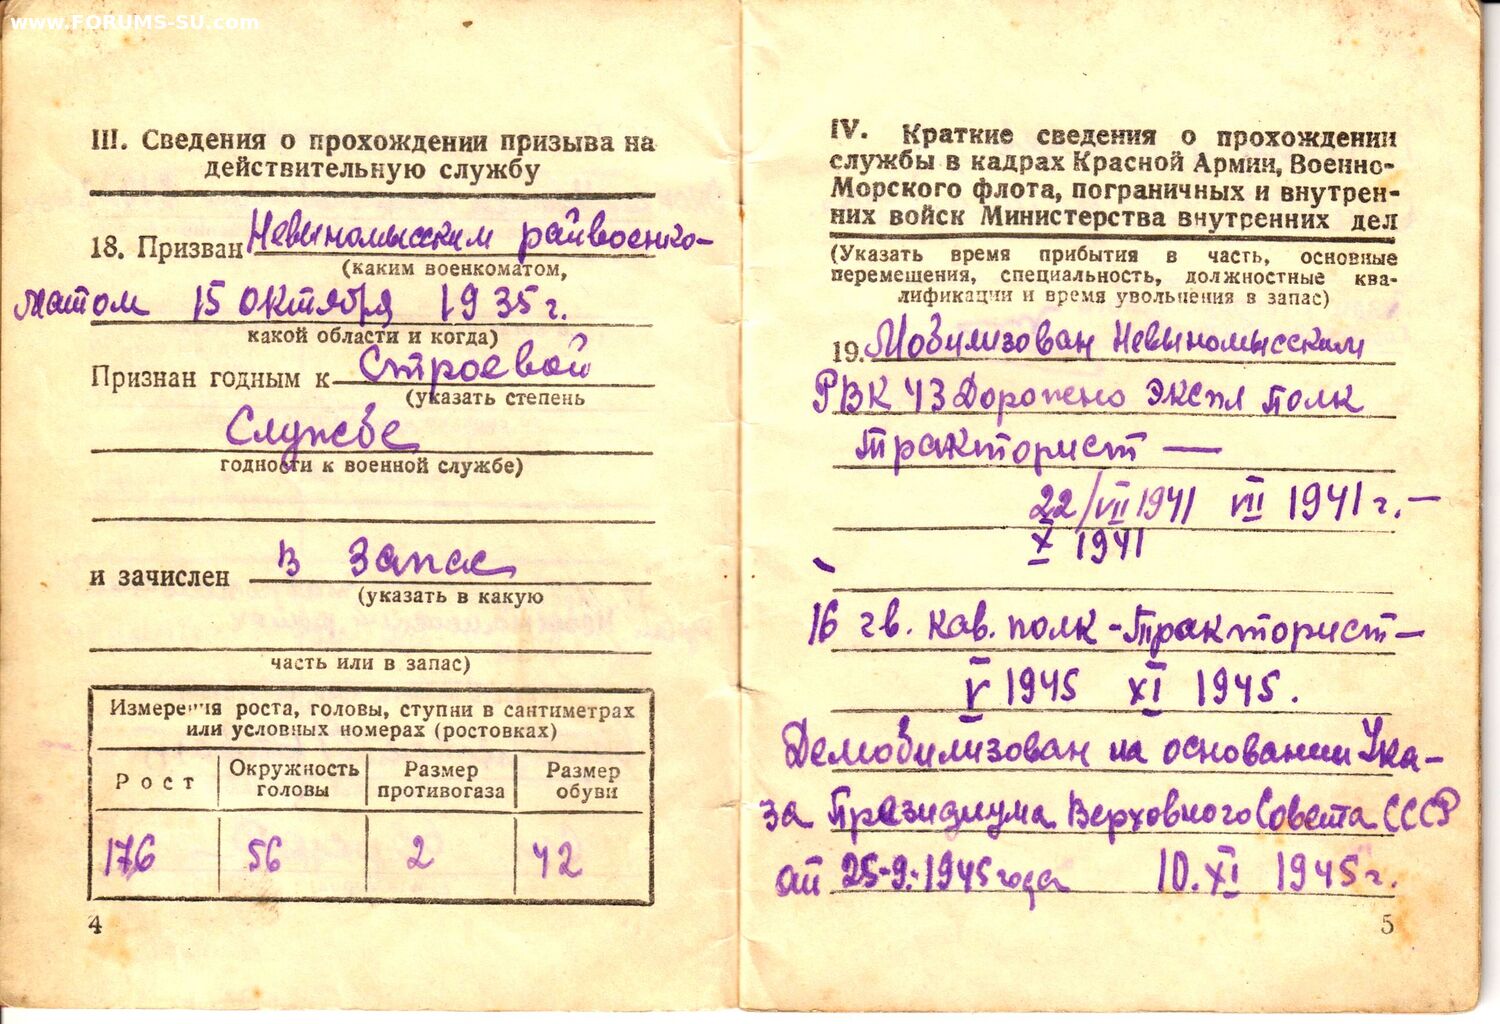 www.FORUMS-SU.com
III. Сведения о прохождении призыва на
действительную службу
18. Призван Невыномысским райвоенко-
(каким военкоматом,
матом 15 октября 1935 г.
какой области и когда)
Признан годным к Строевой
(указать степень
Службе
годности к военной службе)
и зачислен в Запас
(указать в какую
часть или в запас)
Измерения роста, головы, ступни в сантиметрах
или условных номерах (ростовках)
Рост
Окружность головы
Размер противогаза
Размер обуви
176 56 2 42
4
IV. Краткие сведения о прохождении
службы в кадрах Красной Армии, Военно-
Морского флота, пограничных и внутрен-
них войск Министерства внутренних дел
(Указать время прибытия в часть, основные
перемещения, специальность, должностные ква-
лификации и время увольнения в запас)
19. Мобилизован Невыномысским
РВК 43 Дорожно Экспл Полк
тракторист —
22/VII 1941 VII 1941 г. —
X 1941
16 гв. кав. полк - Тракторист —
V 1945 XI 1945.
Демобилизован на основании Ука-
за Президиума Верховного Совета СССР
от 25-9.-1945 года 10. XI 1945 г.
5